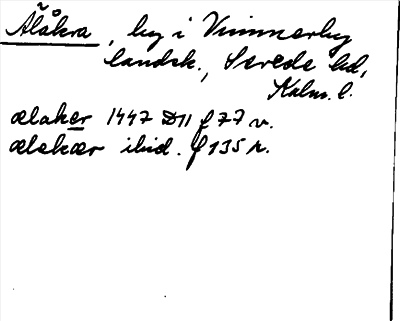 Ålåkra, by i Vimmerby
landsk., Sevede hd,
Kalm. l.
ælaker 1447 D11 f 77 v.
ælekær ibid. f 135 r.